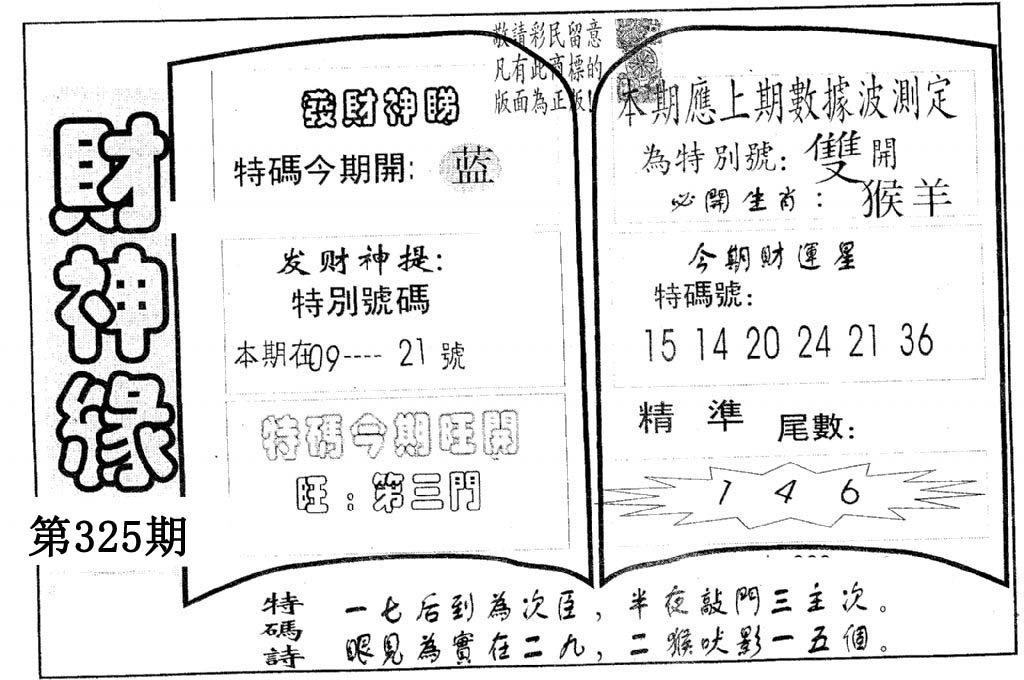 財神緣
第325期
敬請彩民留意
凡有此商標的
版面為正版!
發財神睇
特碼今期開: 蓝
发财神提:
特別號碼
本期在09---- 21號
特碼今期旺開
旺:第三門
本期應上期數據波測定
為特別號: 雙開
必開生肖: 猴羊
今期財運星
特碼號:
15 14 20 24 21 36
精準 尾數:
1 4 6
特碼詩
一七后到為次臣,半夜敲門三主次。
眼見為實在二九,二猴吠影一五個。